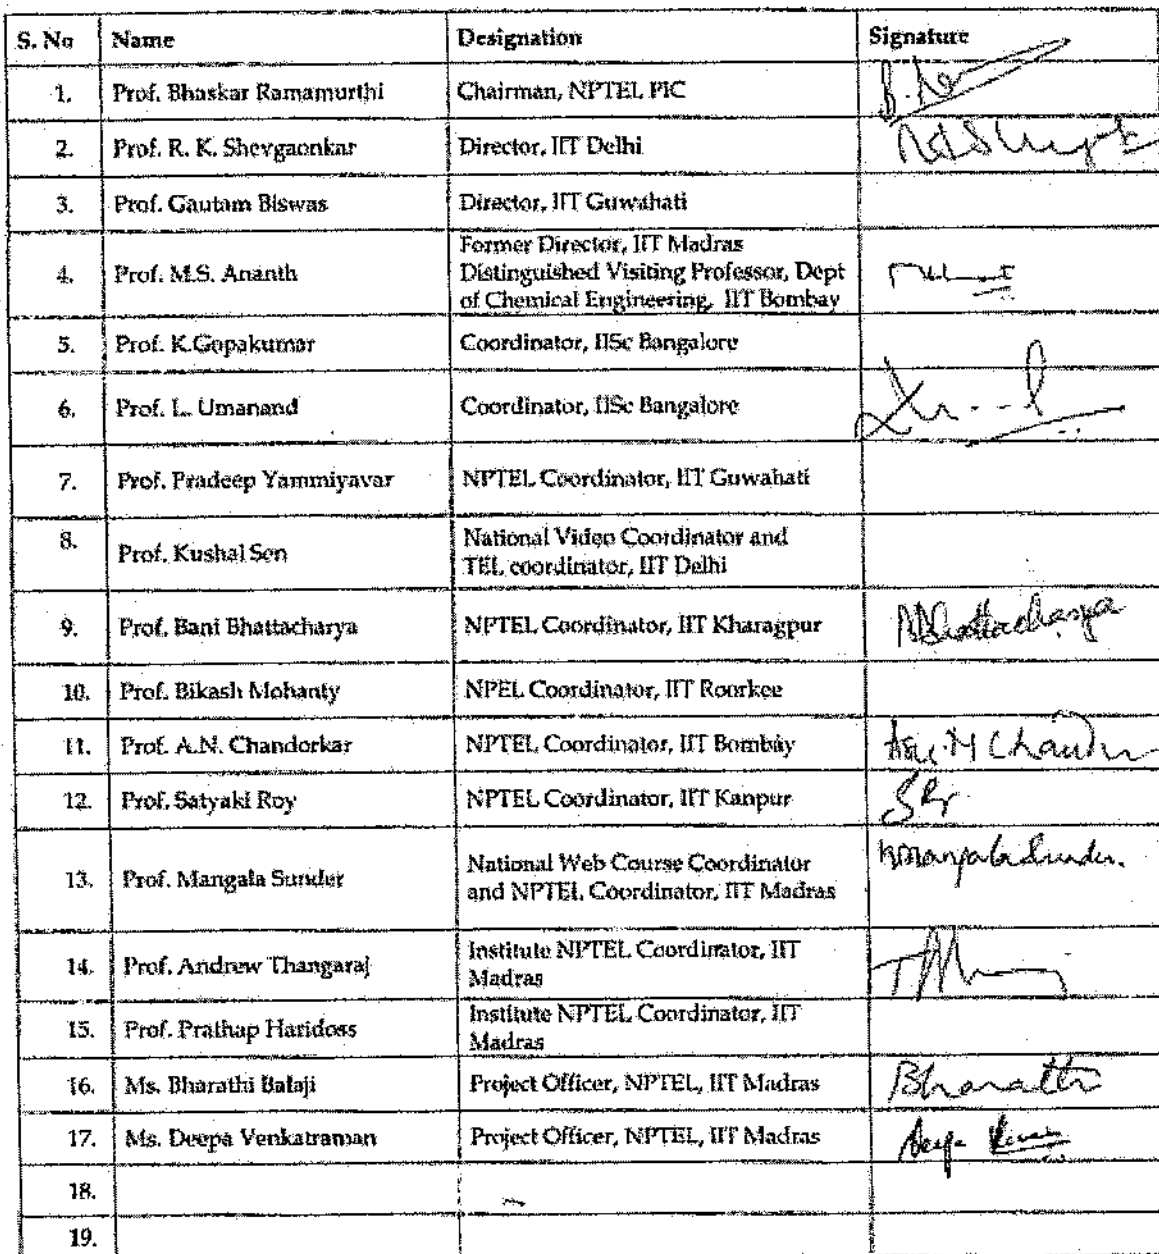 S. No Name Designation Signature
1. Prof. Bhaskar Ramamurthi Chairman, NPTEL PIC
2. Prof. R. K. Shevgaonkar Director, IIT Delhi
3. Prof. Gautam Biswas Director, IIT Guwahati
Former Director, IIT Madras
4. Prof. M.S. Ananth Distinguished Visiting Professor, Dept
of Chemical Engineering, IIT Bombay
5. Prof. K.Gopakumar Coordinator, IISc Bangalore
6. Prof. L. Umanand Coordinator, IISc Bangalore
7. Prof. Pradeep Yammiyavar NPTEL Coordinator, IIT Guwahati
8. Prof. Kushal Sen National Video Coordinator and
TEL coordinator, IIT Delhi
9. Prof. Bani Bhattacharya NPTEL Coordinator, IIT Kharagpur Bhattacharya
10. Prof. Bikash Mohanty NPEL Coordinator, IIT Roorkee
11. Prof. A.N. Chandorkar NPTEL Coordinator, IIT Bombay
12. Prof. Satyaki Roy NPTEL Coordinator, IIT Kanpur
13. Prof. Mangala Sunder National Web Course Coordinator
and NPTEL Coordinator, IIT Madras
14. Prof. Andrew Thangaraj Institute NPTEL Coordinator, IIT
Madras
15. Prof. Prathap Haridoss Institute NPTEL Coordinator, IIT
Madras
16. Ms. Bharathi Balaji Project Officer, NPTEL, IIT Madras Bharathi
17. Ms. Deepa Venkatraman Project Officer, NPTEL, IIT Madras
18.
19.